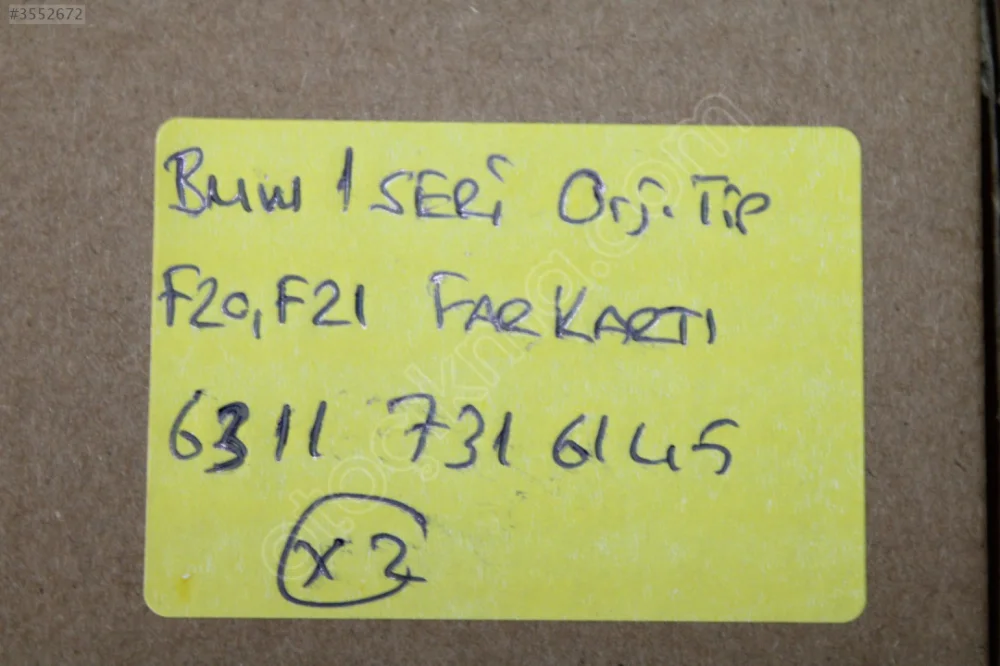 #3552672
BMW 1 SERİ Orj. TİP
F20, F21 FAR KARTI
6311 731 6145
x2